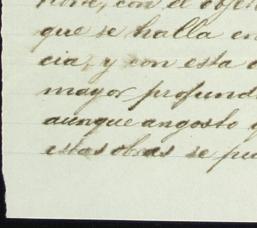 con el obje
que se halla en
cia, y con esta
mayor profund
aunque angosto y
estas obras se pu